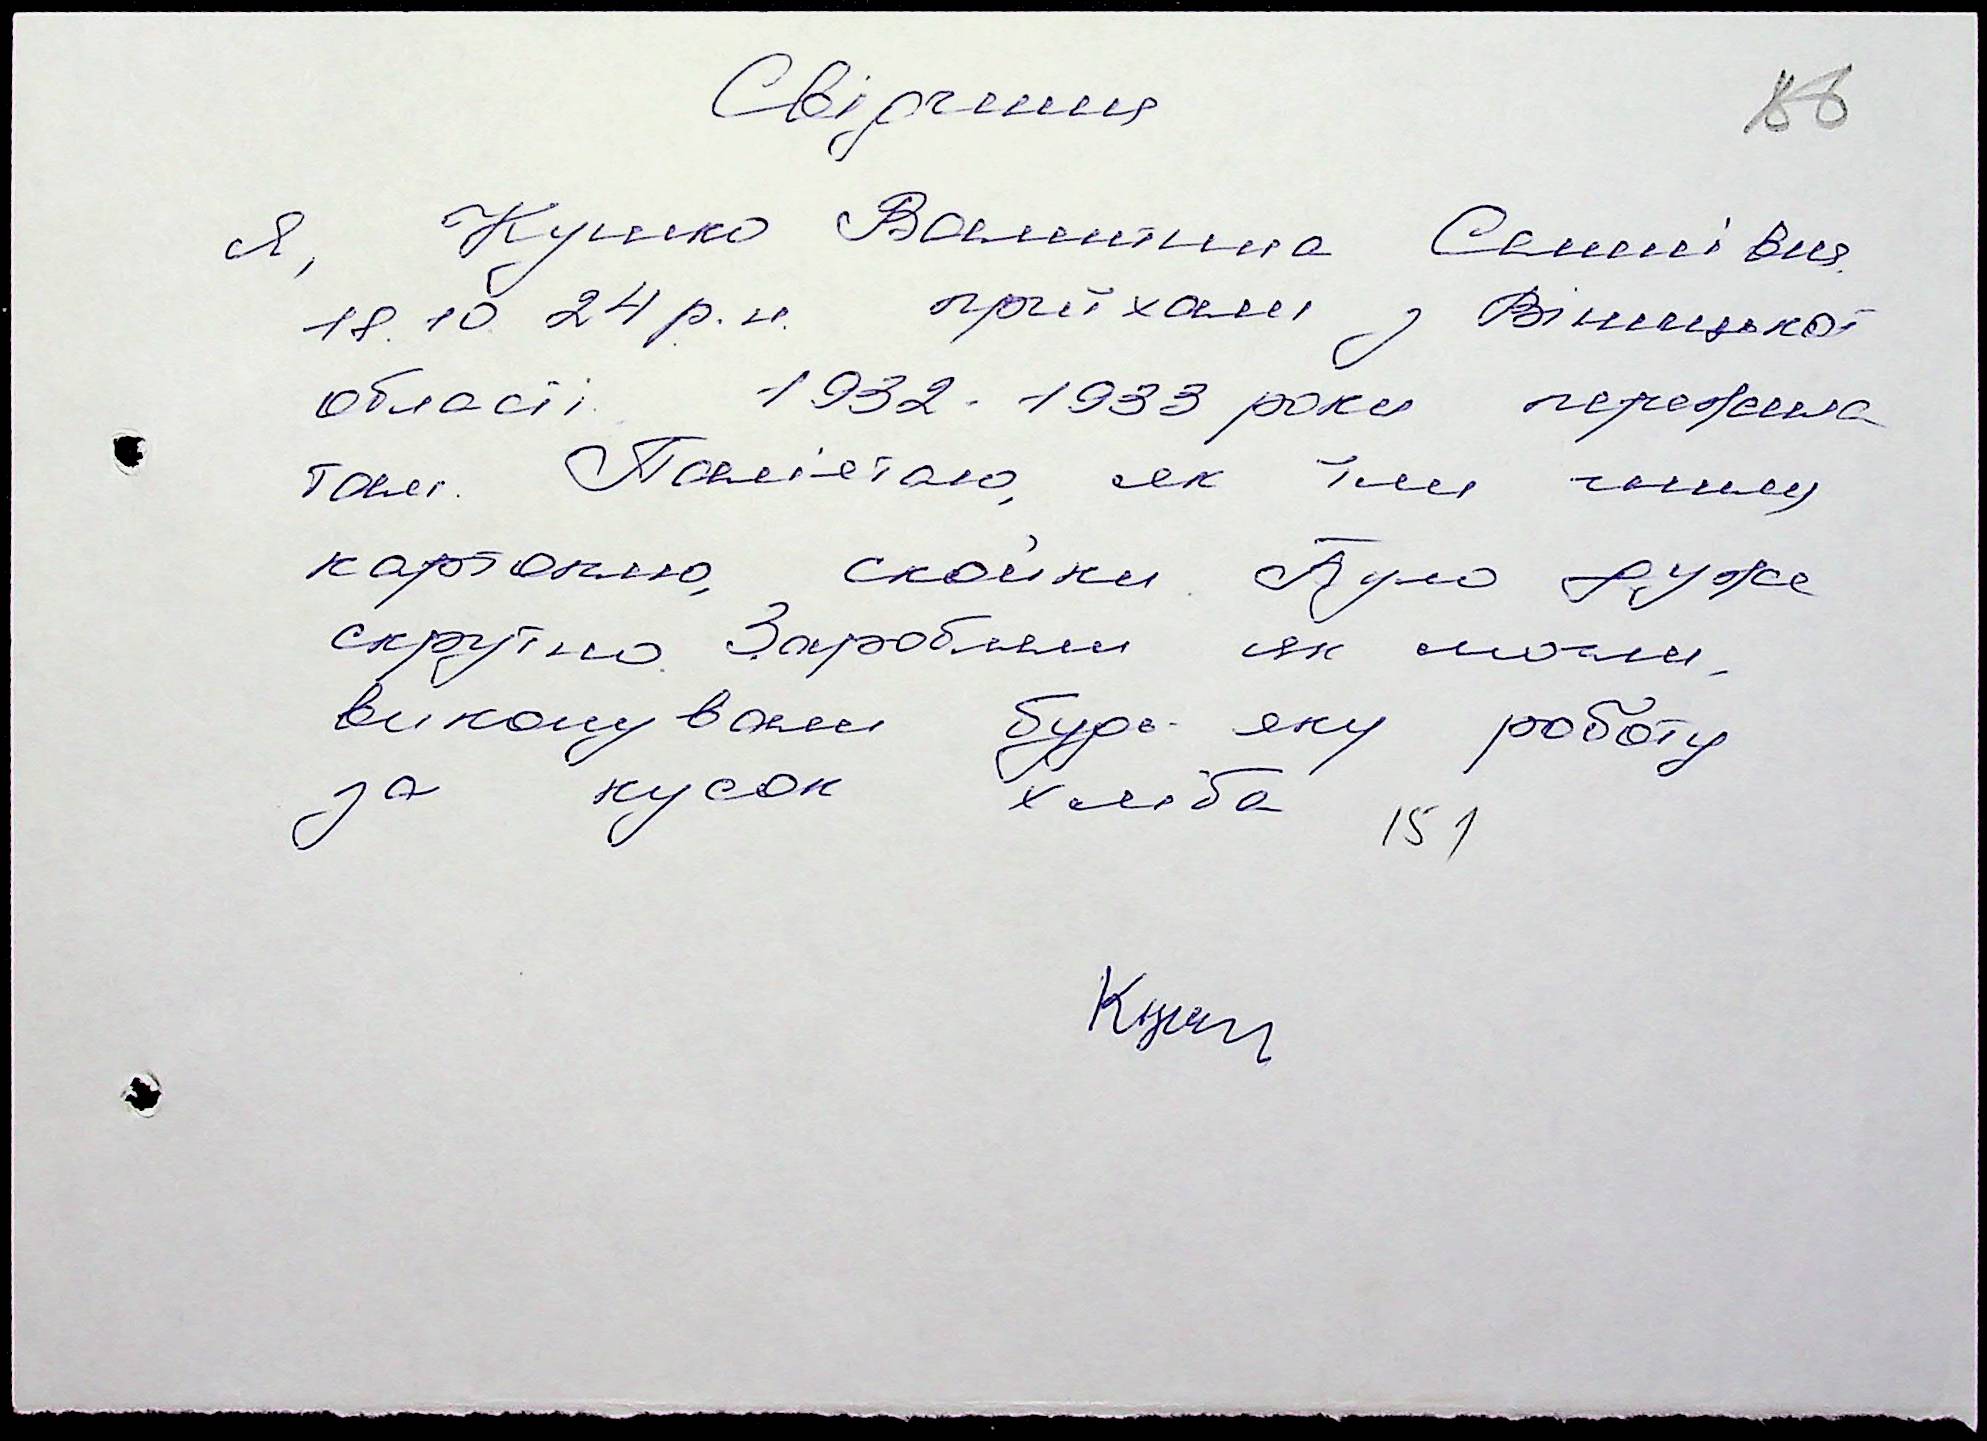 Свідчення
88
Я, Кушко Валентина Саннівна
18.10 24 р.н. приїхали з Вінницької
області. 1932-1933 роки пережила
там. Пам'ятаю, як їли гнилу
картоплю, скойки. Було дуже
скрутно. Заробляли як могли,
виконували будь-яку роботу
за кусок хліба
151